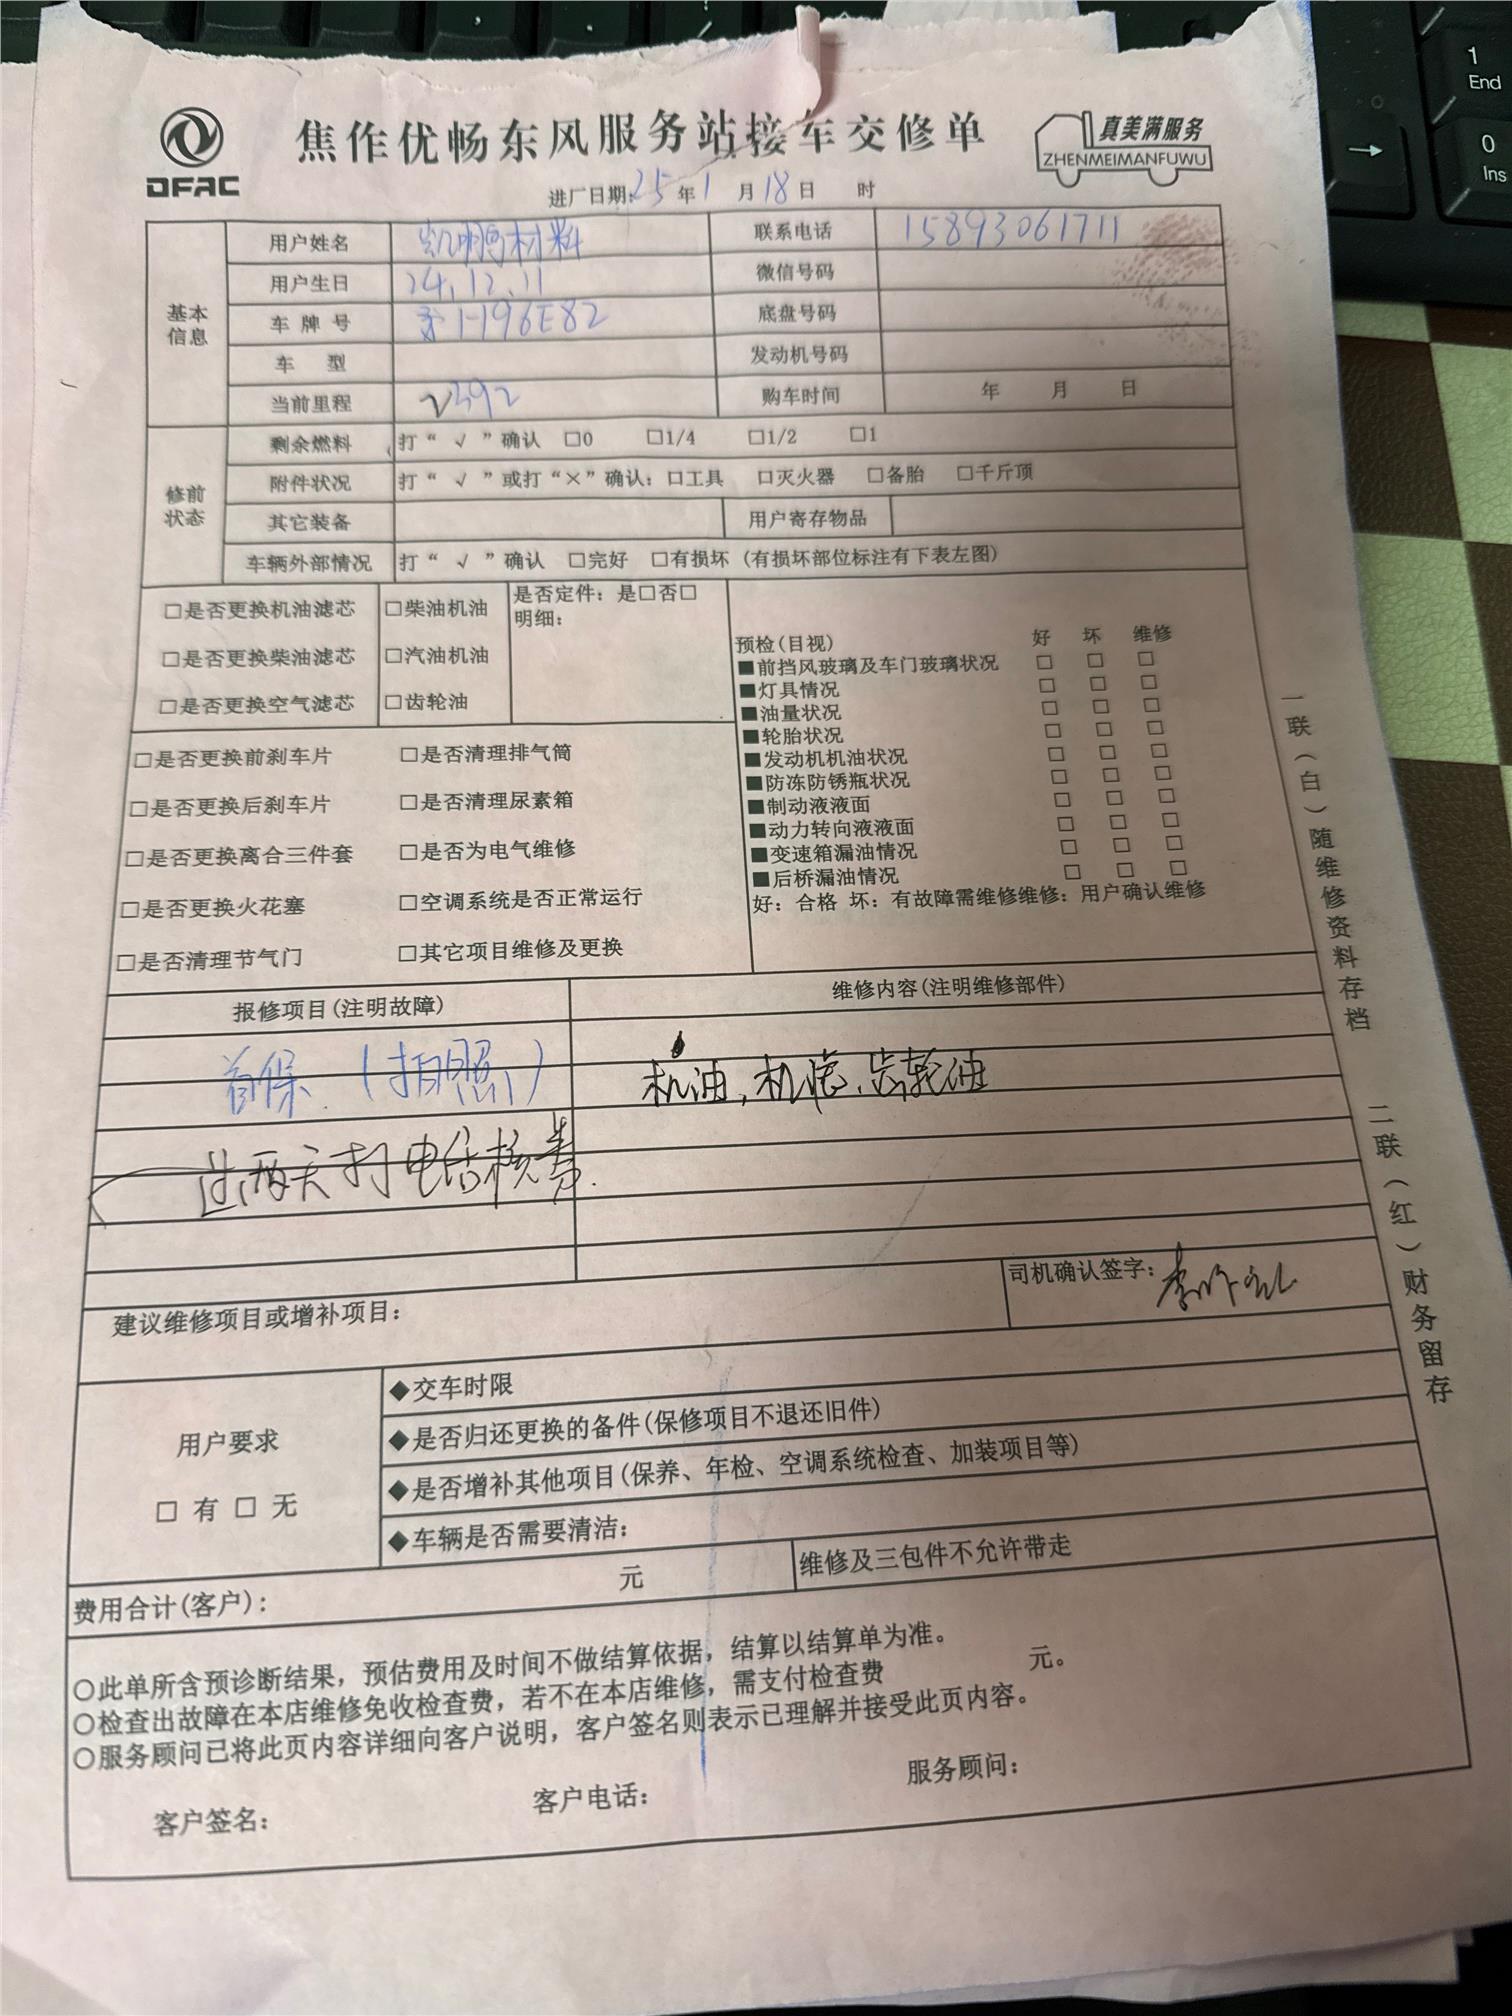 DFAC
焦作优畅东风服务站接车交修单
真美满服务
ZHENMEIMANFUWU
进厂日期:25年1月18日 时
基本信息
用户姓名 联系电话 15893061711
用户生日 24.12.11 微信号码
车牌号 底盘号码
车 型 发动机号码
当前里程 2392 购车时间 年 月 日
修前状态
剩余燃料 打“√”确认 □0 □1/4 □1/2 □1
附件状况 打“√”或打“×”确认:□工具 □灭火器 □备胎 □千斤顶
其它装备 用户寄存物品
车辆外部情况 打“√”确认 □完好 □有损坏(有损坏部位标注有下表左图)
□是否更换机油滤芯 □柴油机油 是否定件:是□否□
明细:
□是否更换柴油滤芯 □汽油机油
□是否更换空气滤芯 □齿轮油
□是否更换前刹车片 □是否清理排气筒
□是否更换后刹车片 □是否清理尿素箱
□是否更换离合三件套 □是否为电气维修
□是否更换火花塞 □空调系统是否正常运行
□是否清理节气门 □其它项目维修及更换
预检(目视) 好 坏 维修
■前挡风玻璃及车门玻璃状况 □ □ □
■灯具情况 □ □ □
■油量状况 □ □ □
■轮胎状况 □ □ □
■发动机机油状况 □ □ □
■防冻防锈瓶状况 □ □ □
■制动液液面 □ □ □
■动力转向液液面 □ □ □
■变速箱漏油情况 □ □ □
■后桥漏油情况 □ □ □
好:合格 坏:有故障需维修维修:用户确认维修
报修项目(注明故障) 维修内容(注明维修部件)
首保(拍照) 机油,机滤、齿轮油
过两天打电话核券.
建议维修项目或增补项目: 司机确认签字:
用户要求
□ 有 □ 无
◆交车时限
◆是否归还更换的备件(保修项目不退还旧件)
◆是否增补其他项目(保养、年检、空调系统检查、加装项目等)
◆车辆是否需要清洁:
费用合计(客户): 元 维修及三包件不允许带走
○此单所含预诊断结果,预估费用及时间不做结算依据,结算以结算单为准。
○检查出故障在本店维修免收检查费,若不在本店维修,需支付检查费 元。
○服务顾问已将此页内容详细向客户说明,客户签名则表示已理解并接受此页内容。
客户签名: 客户电话: 服务顾问:
一联(白)随维修资料存档 二联(红)财务留存
1
End
0
Ins
→